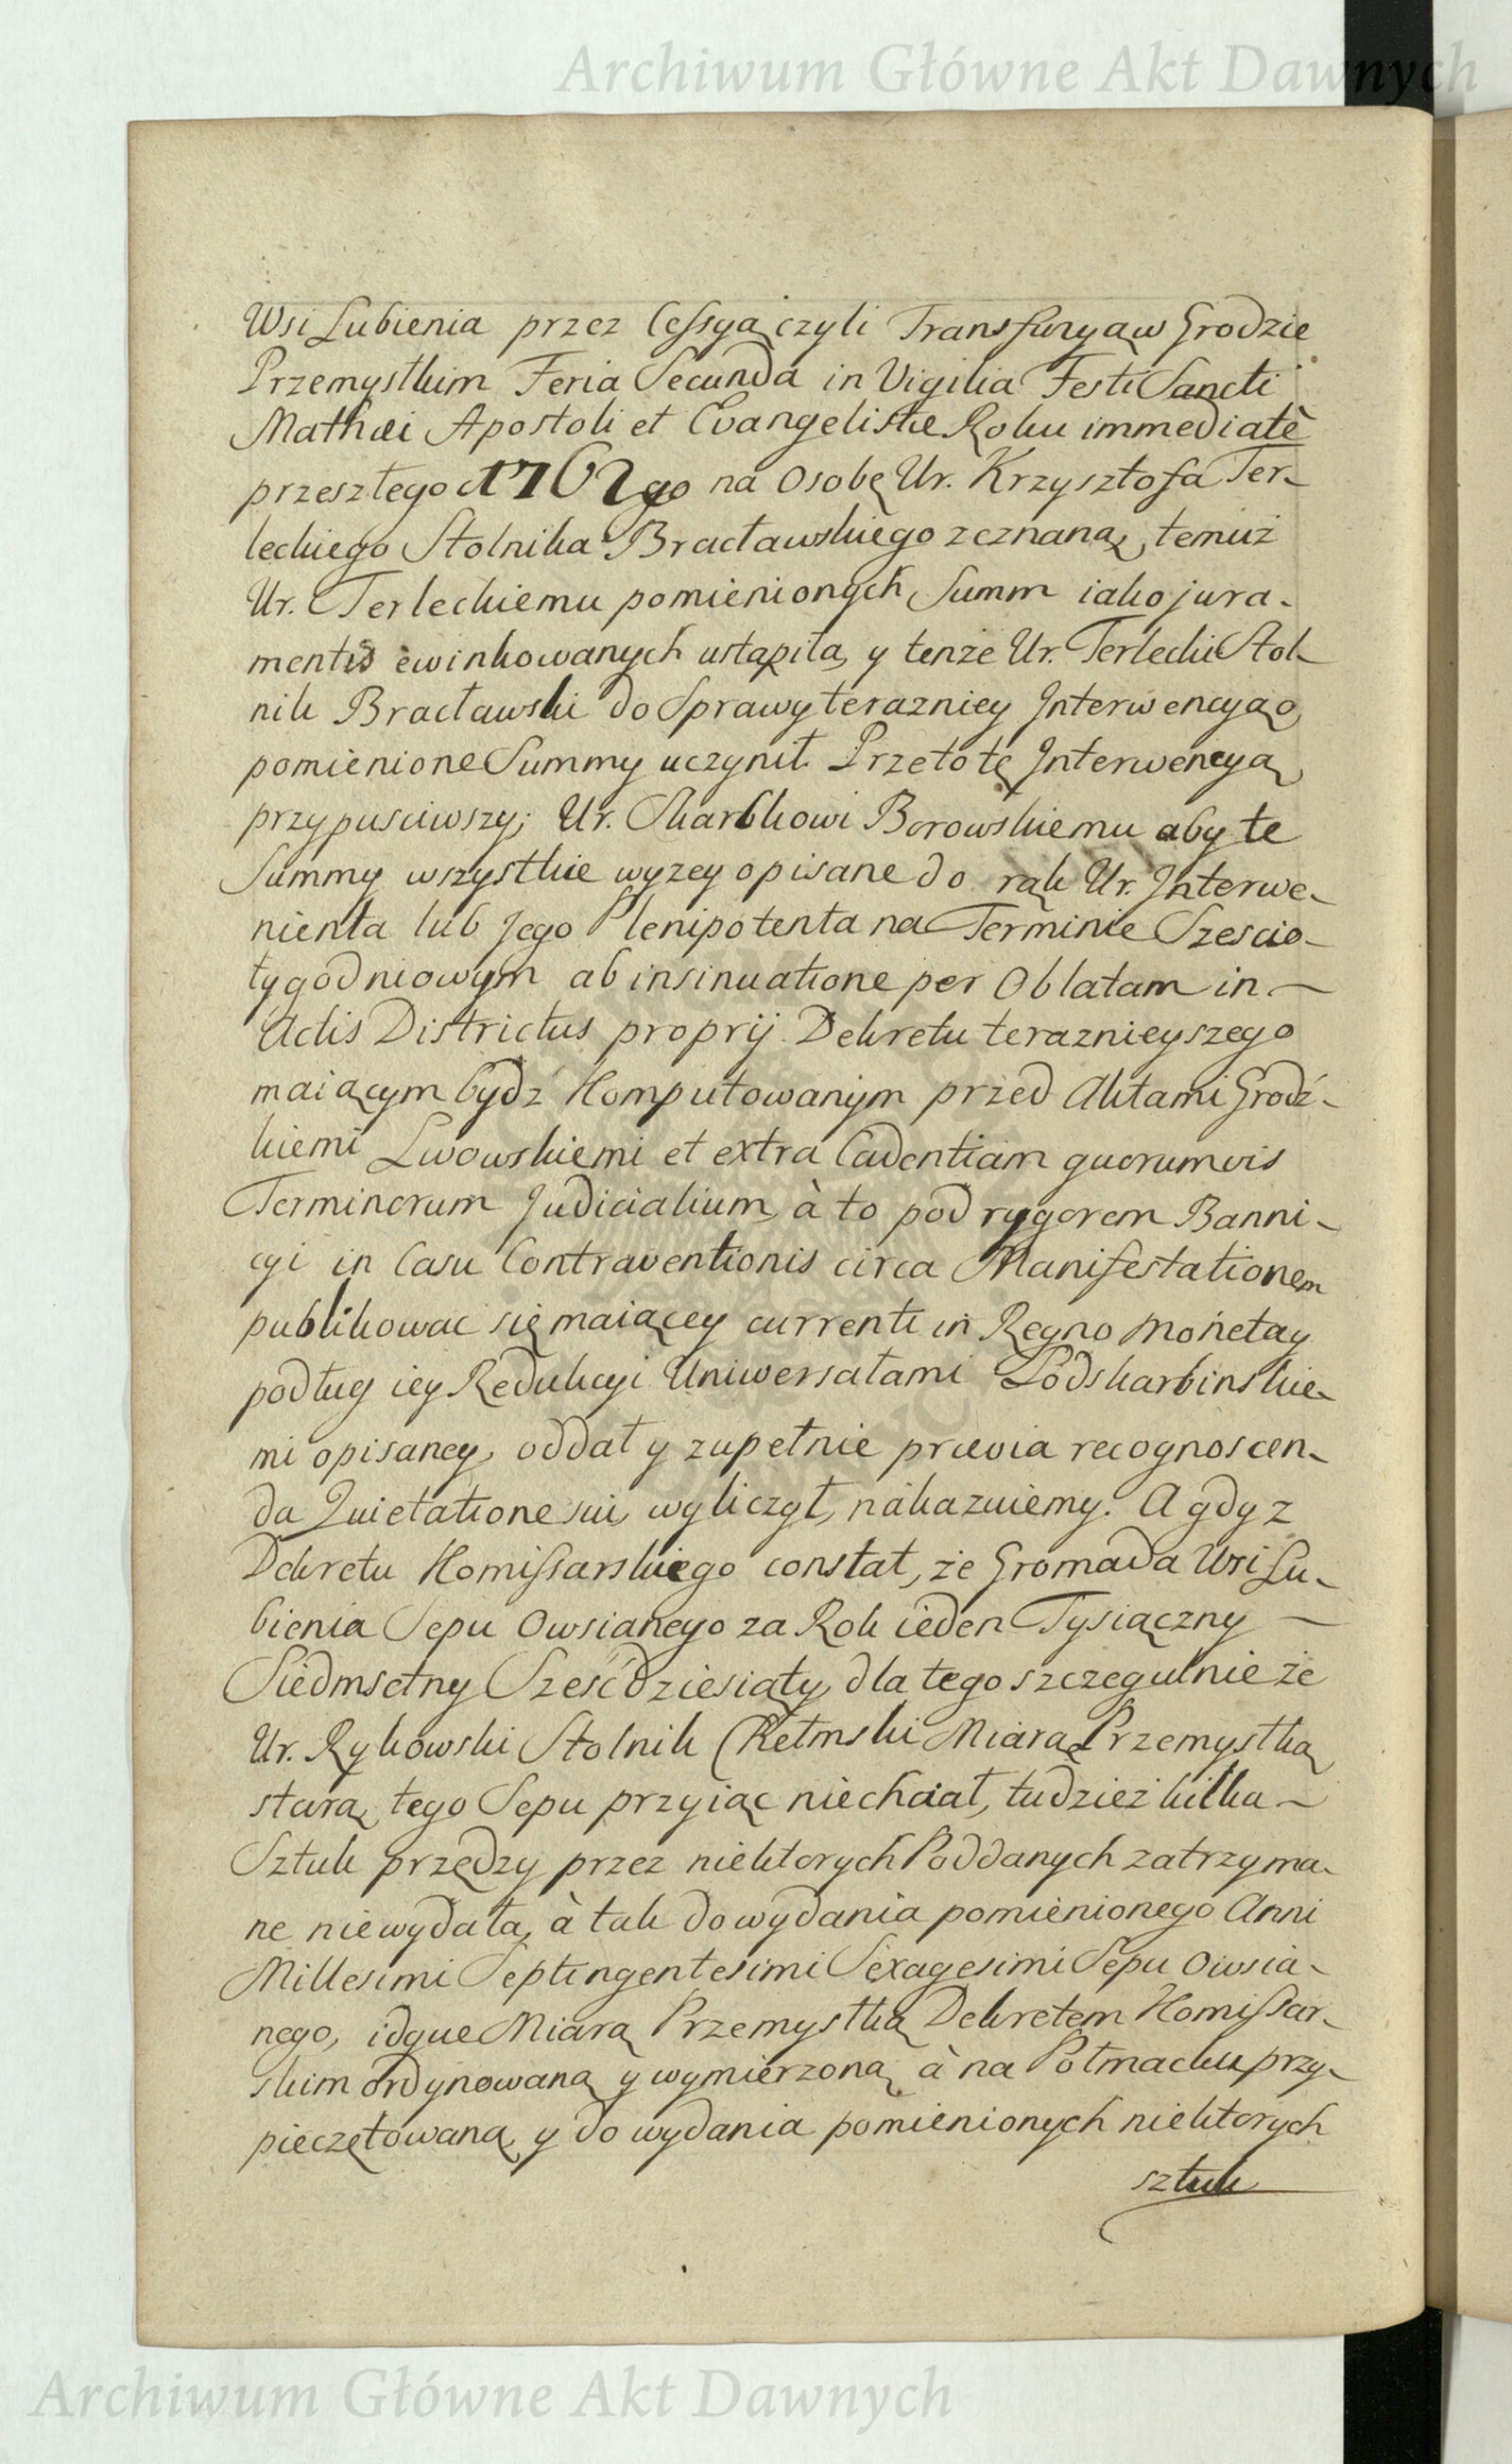 Archiwum Główne Akt Dawnych
Wsi Lubienia przez Cessyą czyli Transfuzyą w Grodzie
Przemyslkim Feria Secunda in Vigilia Festi Sancti
Mathæi Apostoli et Evangelistæ Roku immediatè
przeszłego 1762go na Osobę Ur. Krzysztofa Ter-
leckiego Stolnika Bracławskiego zeznaną, temuż
Ur. Terleckiemu pomienionych Summ iako jura-
mentis ewinkowanych ustąpiła, y tenze Ur. Terlecki Stol-
nik Bracławski do Sprawy terazniey Interwencyą o
pomienione Summy uczynił. Przeto tę Interwencyą
przypusciwszy; Ur. Skarbkowi Borowskiemu aby te
Summy wszystkie wyzey opisane do rąk Ur. Interwe-
nienta lub Jego Plenipotenta na Terminie Szescio-
tygodniowym ab insinuatione per Oblatam in -
Actis Districtus proprij Dekretu teraznieyszego
maiącym bydź Komputowanym przed Aktami Grodź-
kiemi Lwowskiemi et extra Cadentiam quorumvis
Terminorum Judicialium, à to pod rygorem Banni-
cyi in Casu Contraventionis circa Manifestationem
publikowac się maiącey currenti in Regno Monetay
podług iey Redukcyi Uniwersałami Podskarbinskie-
mi opisaney, oddał y zupełnie prævia recognoscen-
da Quietatione sui, wyliczył, nakazuiemy. A gdy z
Dekretu Komissarskiego constat, że Gromada Wsi Lu-
bienia Sepu Owsianego za Rok ieden Tysiączny -
Siedmsetny Sześćdziesiąty, dla tego szczegulnie że
Ur. Rykowski Stolnik Chełmski Miarą Przemyslką
starą, tego Sepu przyiąc niechciał, tudzież kilka -
Sztuk przędzy przez niektorych Poddanych zatrzyma-
ne niewydała, à tak do wydania pomienionego Anni
Millesimi Septingentesimi Sexagesimi Sepu Owsia-
nego, idque Miarą Przemyslką Dekretem Komissar-
skim ordynowaną y wymierzoną, à na Połmacku przy-
pieczętowaną, y do wydania pomienionych niektorych
sztuk
Archiwum Główne Akt Dawnych